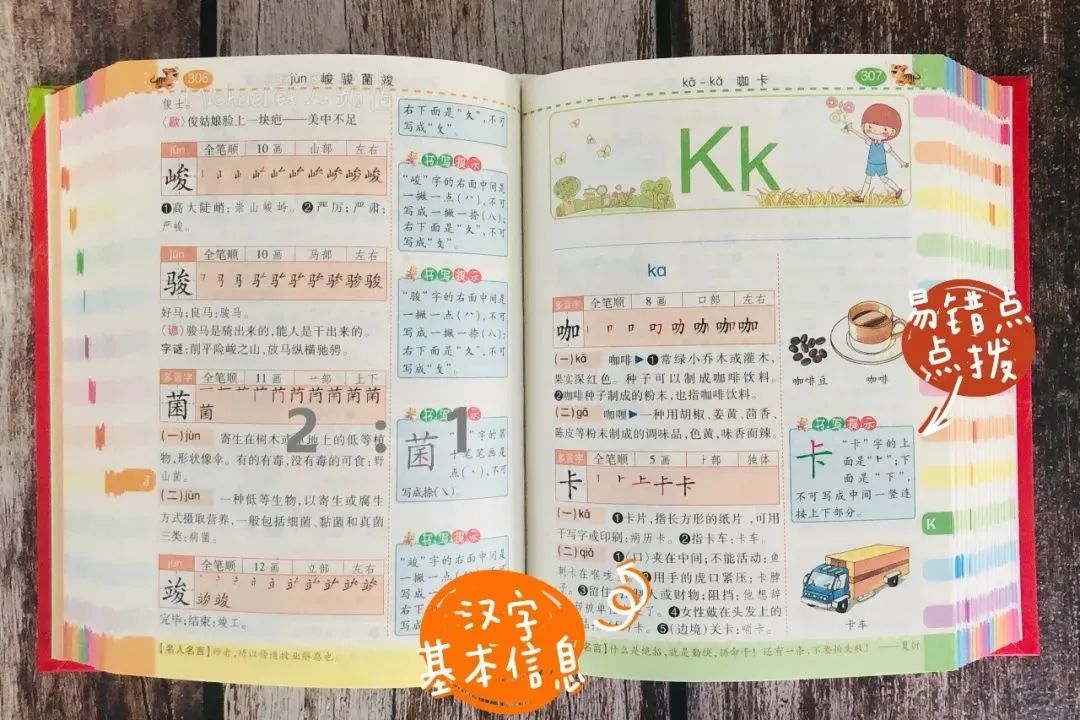 306
jùn 峻骏菌竣
俊士。
〈歇〉俊姑娘脸上一块疤——美中不足
jùn 全笔顺 10画 山部 左右
峻
❶高大陡峭；崇山峻岭。❷严厉；严肃；
严峻。
jùn 全笔顺 10画 马部 左右
骏
好马；良马；骏马。
〈谚〉骏马是骑出来的，能人是干出来的。
字谜：削平险峻之山，放马纵横驰骋。
多音字 全笔顺 11画 艹部 上下
菌
(一)jūn 寄生在树木或
地上的低等植
物，形状像伞。有的有毒，没有毒的可食；野
山菌。
(二)jùn 一种低等生物，以寄生或腐生
方式摄取营养，一般包括细菌、黏菌和真菌
三类；病菌。
jùn 全笔顺 12画 立部 左右
竣
完毕；结束；竣工。
【名人名言】师者，所以传道授业解惑也。
右下面是“夂”，不可
写成“攵”。
书写提示
“峻”字的右面中间是
一撇一点(八)，不可
写成一撇一捺(八)；
右下面是“夂”，不可
写成“攵”。
书写提示
“骏”字的右面中间是
一撇一点
不可
写成一撇一捺(八)；
右下面是“夂”，不可
写成“攵”。
书写提示
菌
字的第
十笔笔画是
点(丶)，不可
写成捺(㇏)。
书写提示
“竣”字的右面中间是
2 : 1
汉字
基本信息
kā－kǎ 咖卡
307
Kk
ka
多音字 全笔顺 8画 口部 左右
咖
(一)kā 咖啡▶❶常绿小乔木或灌木，
果实深红色。种子可以制成咖啡饮料。
❷咖啡种子制成的粉末，也指咖啡饮料。
(二)gā 咖喱▶一种用胡椒、姜黄、茴香、
陈皮等粉末制成的调味品，色黄，味香而辣。
多音字 全笔顺 5画 卜部 独体
卡
(一)kǎ ❶卡片，指长方形的纸片，可用
于写字或印刷；病历卡。❷指卡车；卡车。
(二)qiǎ ❶(口)夹在中间；不能活动；鱼
刺卡在喉咙
用手的虎口紧压；卡脖
❸留住
人或财物；阻挡；他想辞
❹女性戴在头发上的
❺(边境)关卡；哨卡。
咖啡豆
咖啡
易错点
点拨
书写提示
卡
“卡”字的上
面是“⺊”；下
面是“下”，
不可写成中间一竖连
接上下部分。
K
卡车
名言】什么是绝招，就是勤快，拼命干！还有一条，不要怕失败！ ——夏衍